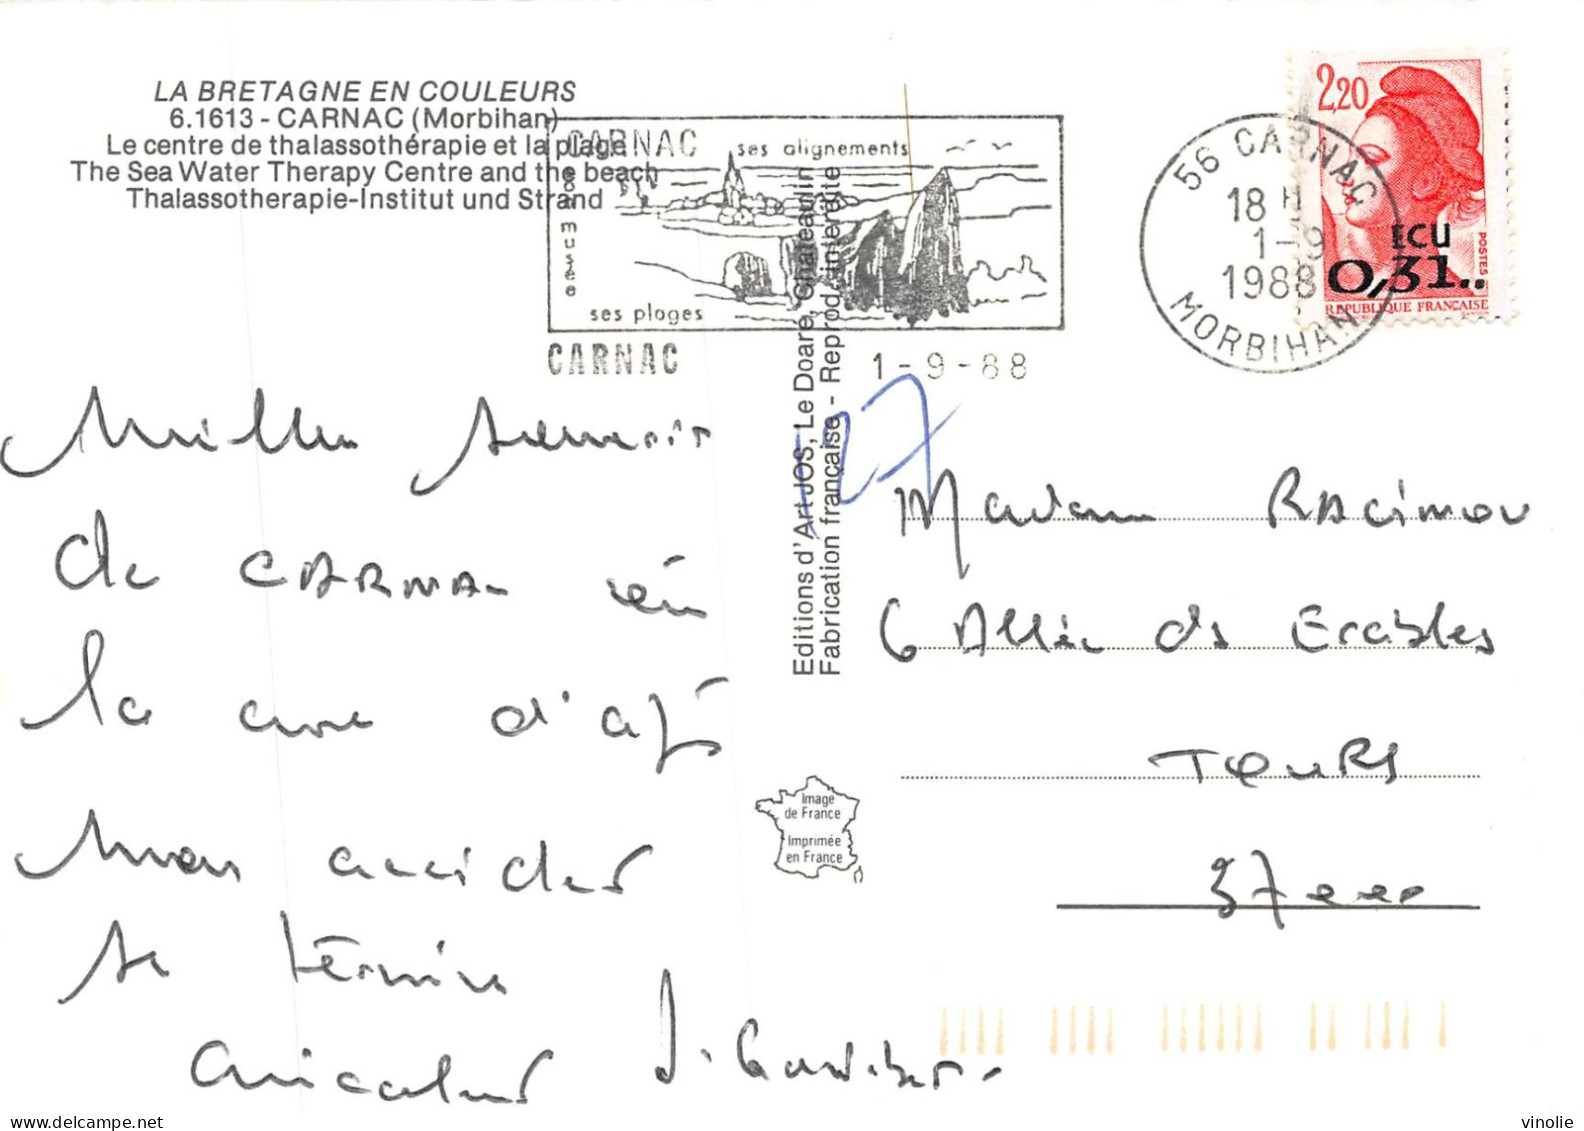 LA BRETAGNE EN COULEURS
6.1613 - CARNAC (Morbihan)
Le centre de thalassothérapie et la plage
The Sea Water Therapy Centre and the beach
Thalassotherapie-Institut und Strand
CARNAC
ses alignements
son musée
ses plages
CARNAC 1-9-88
56 CARNAC
18 H
1-9
1988
MORBIHAN
2,20
ECU
0,31..
POSTES
REPUBLIQUE FRANÇAISE
Editions d'Art JOS, Le Doaré, Châteaulin
Fabrication française - Reprod. interdite
127
de CARNAC
la cure
mon
se termine
Madame RACIMOU
6 Allée des Erables
TOURS
37000
Image
de France
Imprimée
en France
delcampe.net
vinolie